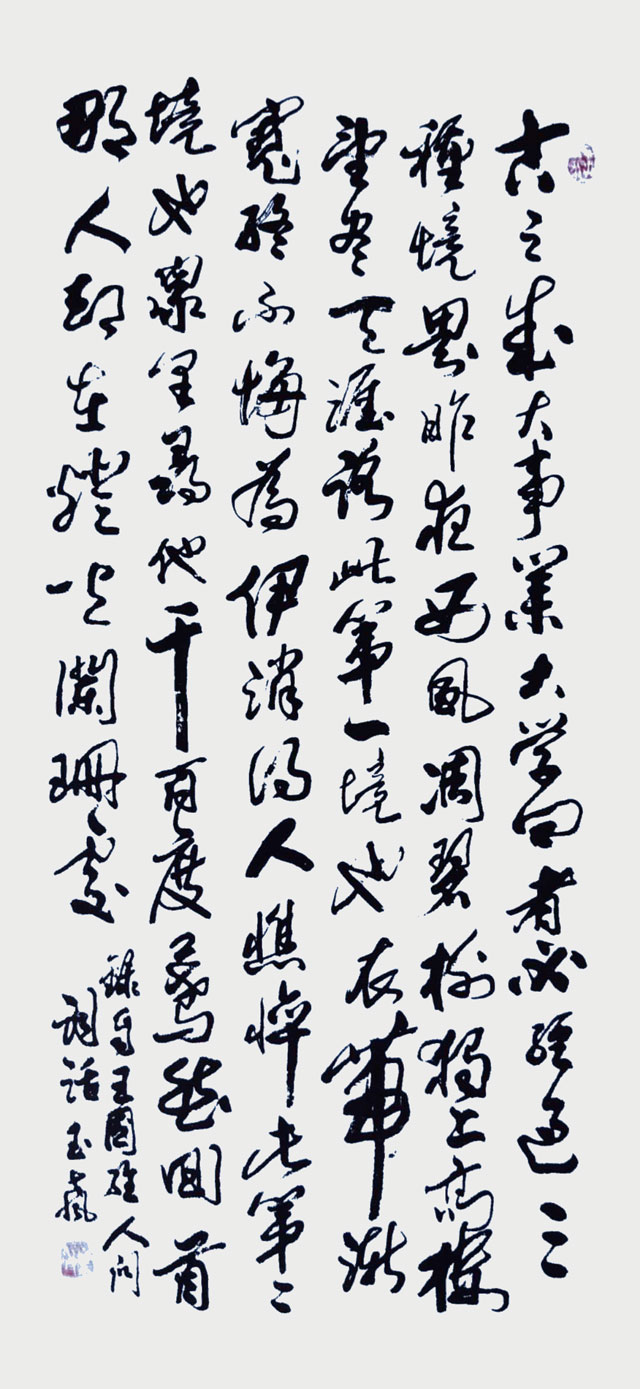 古之成大事業大学问者必經過三
種境界昨夜西風凋碧樹獨上高楼
望尽天涯路此第一境也衣帶漸
寬終不悔為伊消得人憔悴此第二
境也衆里尋他千百度驀然回首
那人却在燈火闌珊處
錄自王國維人间
詞話玉